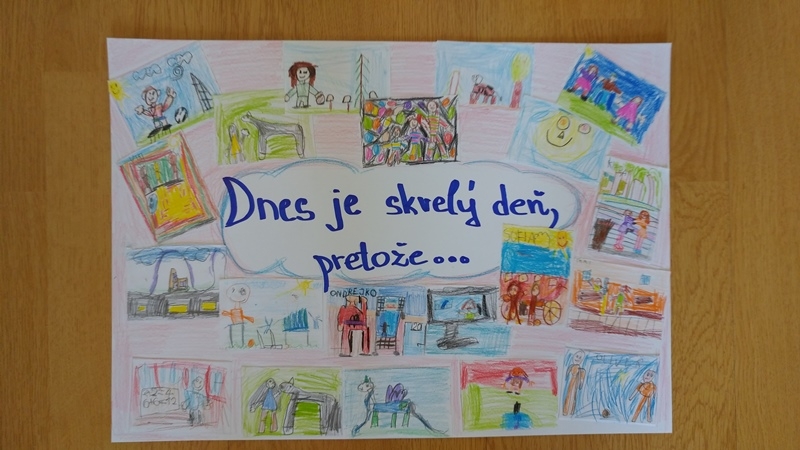 Dnes je skvelý deň,
pretože...
SOFIA
ONDREJKO